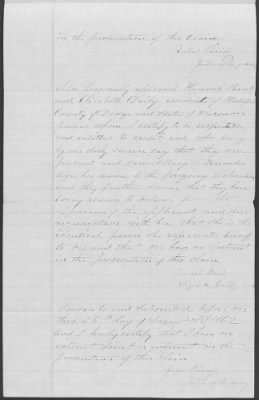 in the prosecution of this Claim.
Justice of the peace
Also personally appeared Hannah
and Elizabeth Baily residents of
County of Dodge and State of Wisconsin
persons whom I certify to be respectable
and entitled to credit and who being
by me duly sworn say that they were
present and saw
sign her name to the foregoing declaration
and they further swear that they have
every reason to believe from the
appearance of the applicant and their
acquaintance with her that she is the
identical person she represents herself
to be and that they have no interest
in the prosecution of this claim
Elizabeth Baily
Sworn to and subscribed before me
this 25th day of August
and I hereby certify that I have no
interest direct or indirect in the
prosecution of this claim
Justice of the peace